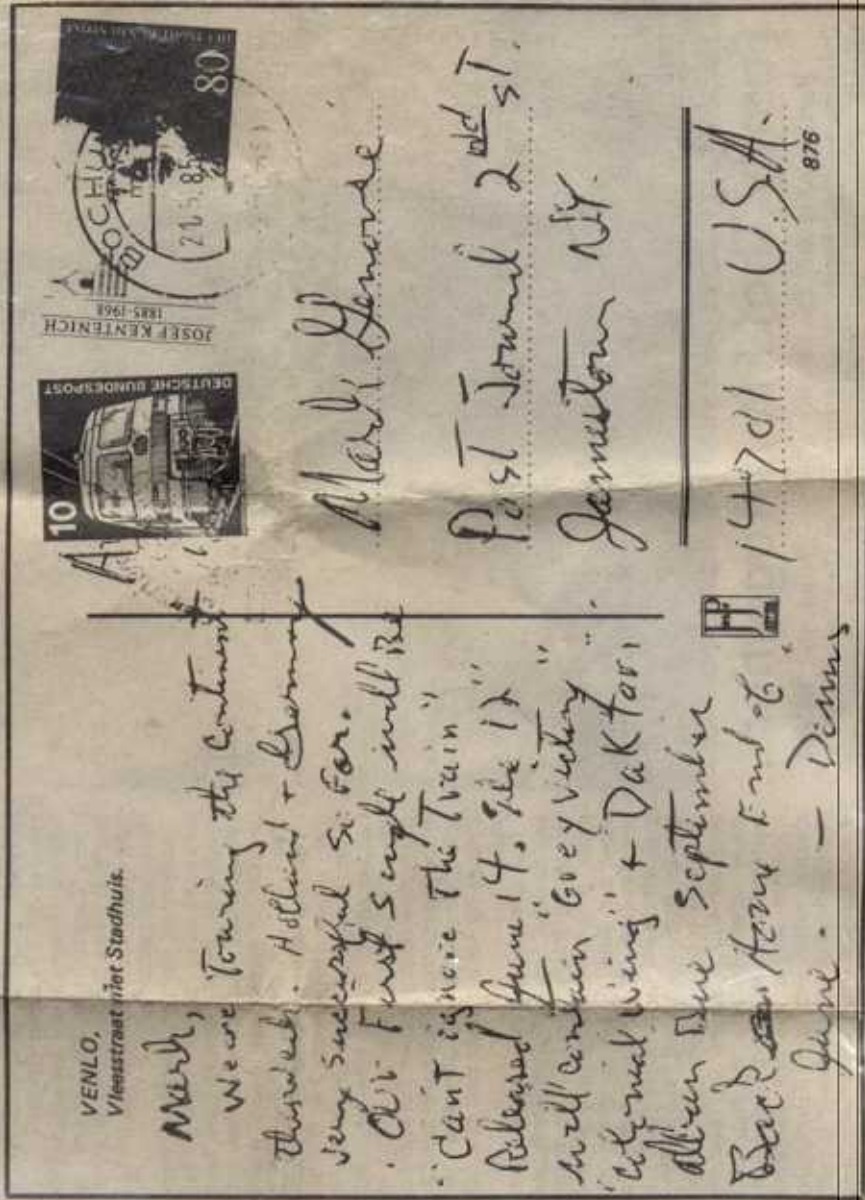 VENLO,
Vleesstraat met Stadhuis.
Mark,
We are Touring the Continent
this week. Holland + Germany
very successful so far.
Our First single will Be
"Can't ignore The Train"
Released June 14. The 12"
will contain "Grey Victory"
"Colonial Wing" + Daktari".
album Due September
Back Home End of
June. - Dennis
10
DEUTSCHE BUNDESPOST
80
JOSEF KENTENICH
1885-1968
BOCHUM
Mark
Post Journal 2nd ST.
Jamestown NY.
14701 USA.
876